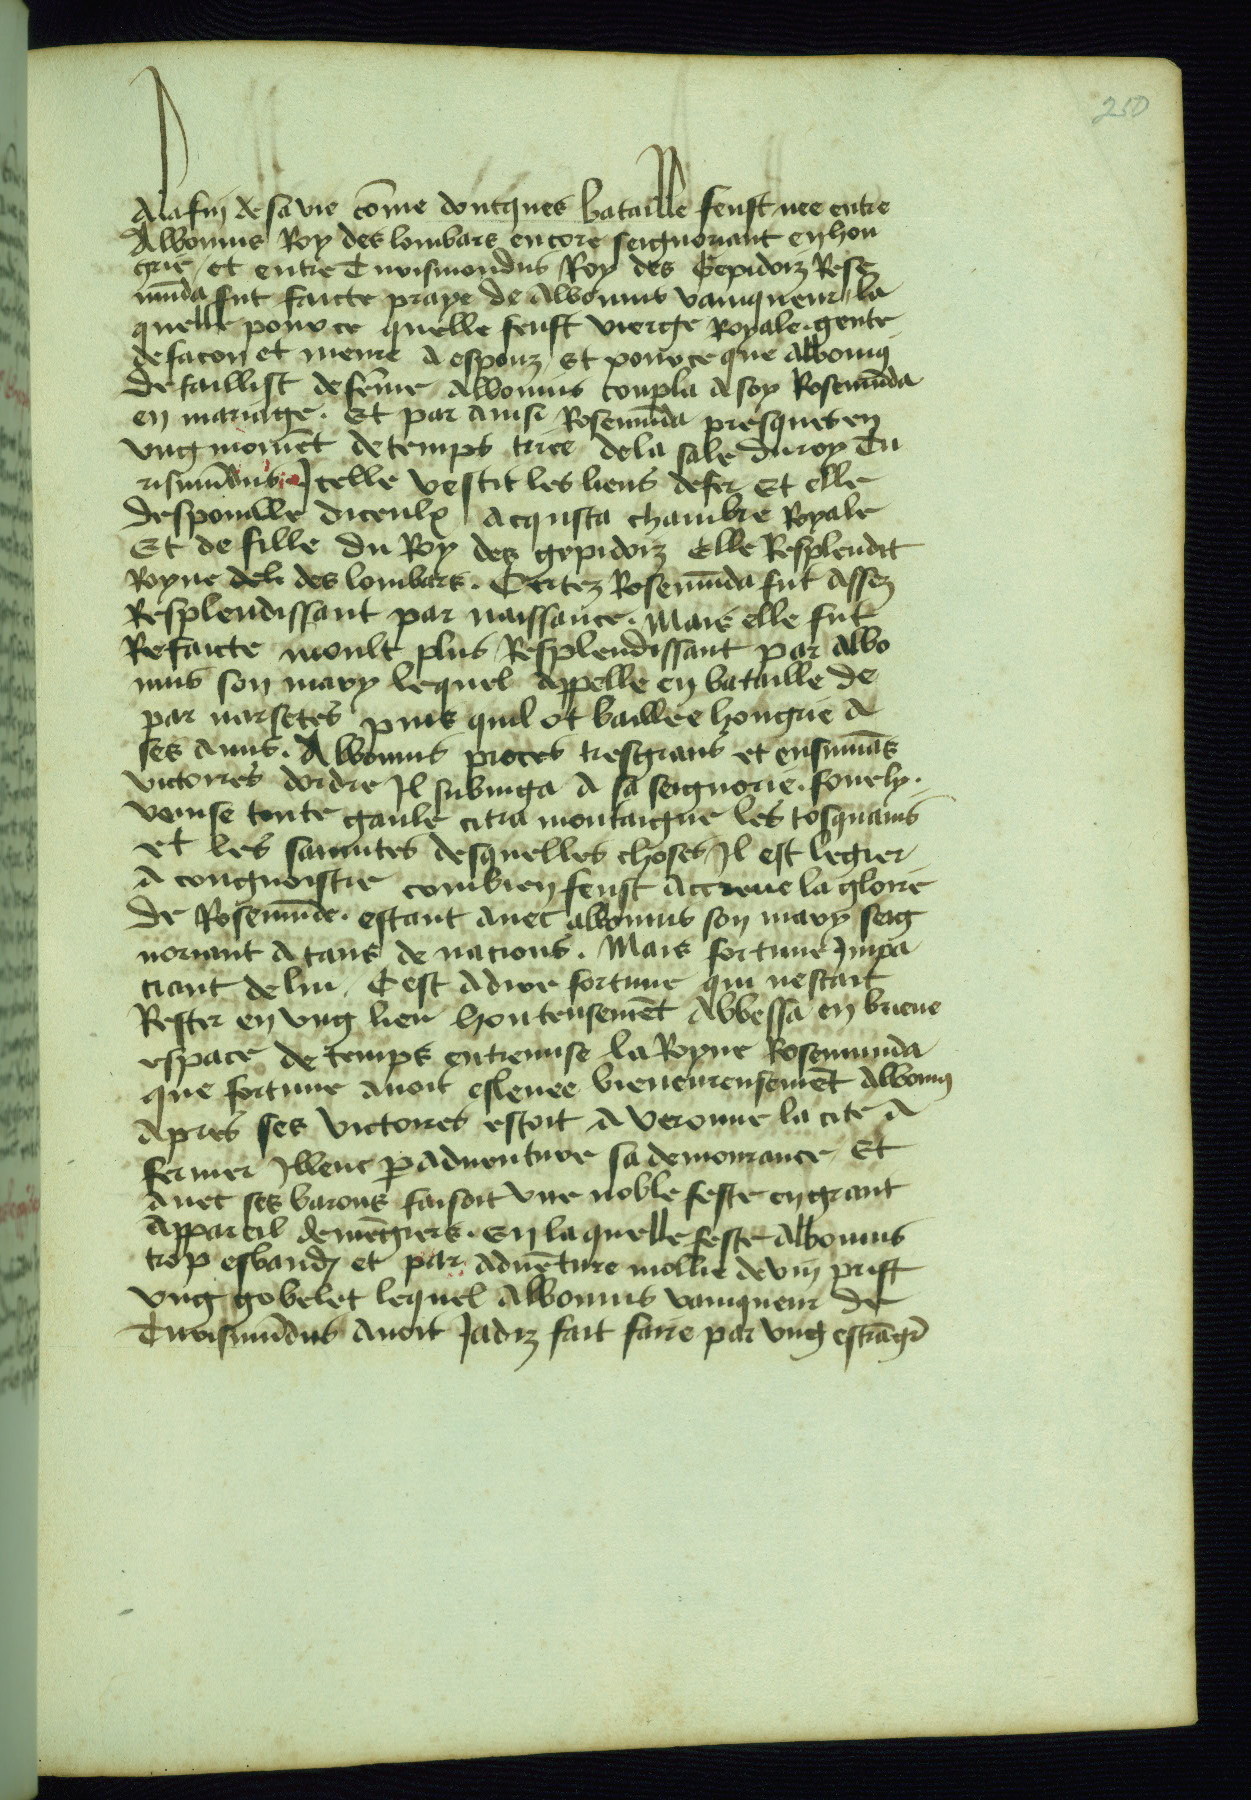 250
Alafin de sa vie cõme doncques bataille feust nee entre
Alboinus Roy des lombars encore seignoriant en hon
grie / et entre Turismondus Roy des Gepidorz Rose
mũda fut faicte praye de Alboinus vainqueur / la
quelle pource quelle feust vierge Royale. gente
de facon et meure a espouz / Et pource que Alboinus
defaillist de fẽme Alboinus coupla a soy Rosemũda
en mariage. Et par ainsi Rosemũda presques en
vng momẽt de temps tiree de la sale du roy Tu
rismũdus Icelle vestit les liens de fer Et elle
despouillee diceulx acquista chambre Royale
Et de fille du Roy dez gepidorz Elle Resplendit
Royne des lombars. Certez Rosemũda fut assez
Resplendissant par naissance. Mais elle fut
Refaicte moult plus Resplendissant par Albo
inus son mary lequel appelle en bataille de
par narsetes puis quil ot baillee hongrie a
ses amis. Alboinus proces tresgrans et ensuiuãs
victoires dordre Il subiuga a sa seignorie. fouely.
venise toute gaule citra montaigne les tosquains
et les samnites desquelles choses Il est legier
a congnoistre combien feust accreue la gloire
de Rosemũde. estant auec alboinus son mary seig
noriant a tans de nacions. Mais fortune Impa
ciant de lui / Cest a dire fortune qui ne scait
Rester en vng lieu honteusemẽt abbessa en brieue
espace de temps entremise la Royne Rosemunda
que fortune auoit esleuee bieneureusemẽt Alboinus
Apres ses victoires estoit a veronne la cite a
fermer Illeuc p aduenture sa demourance Et
auec ses barons faisoit vne noble feste en grant
appareil de mẽgiers. En laquelle feste Alboinus
trop esbaudy et par aduẽture mollie de vin prist
vng gobelet lequel Alboinus vainqueur de
Turismũdus auoit Jadiz fait faire par vng estrãgr̃